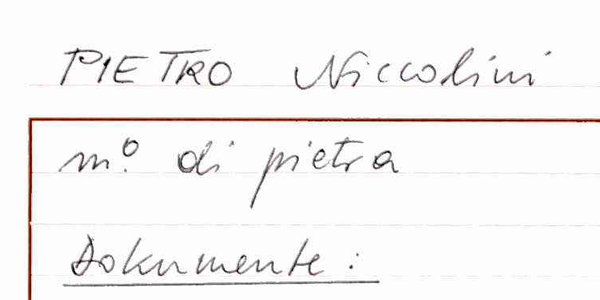 PIETRO Niccolini
mº. di pietra
Dokumente: